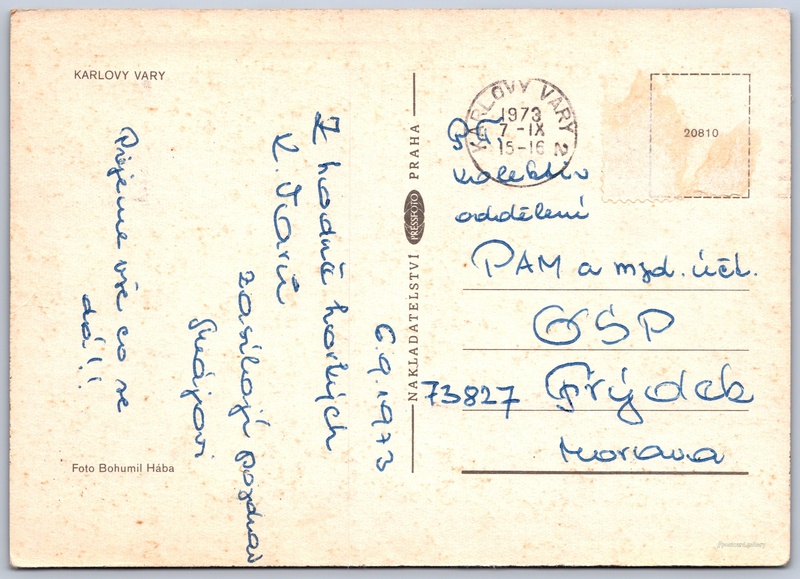 KARLOVY VARY
6.9.1973
Z hodně horkých
K. Varů
zasílají pozdrav
Pijeme vše co se
dá!!
Foto Bohumil Hába
NAKLADATELSTVÍ PRESSFOTO PRAHA
KARLOVY VARY 2
1973
7-IX
15-16
20810
kolektiv
oddělení
PAM a mzd. účt.
OSP
73827 Frýdek
Morava